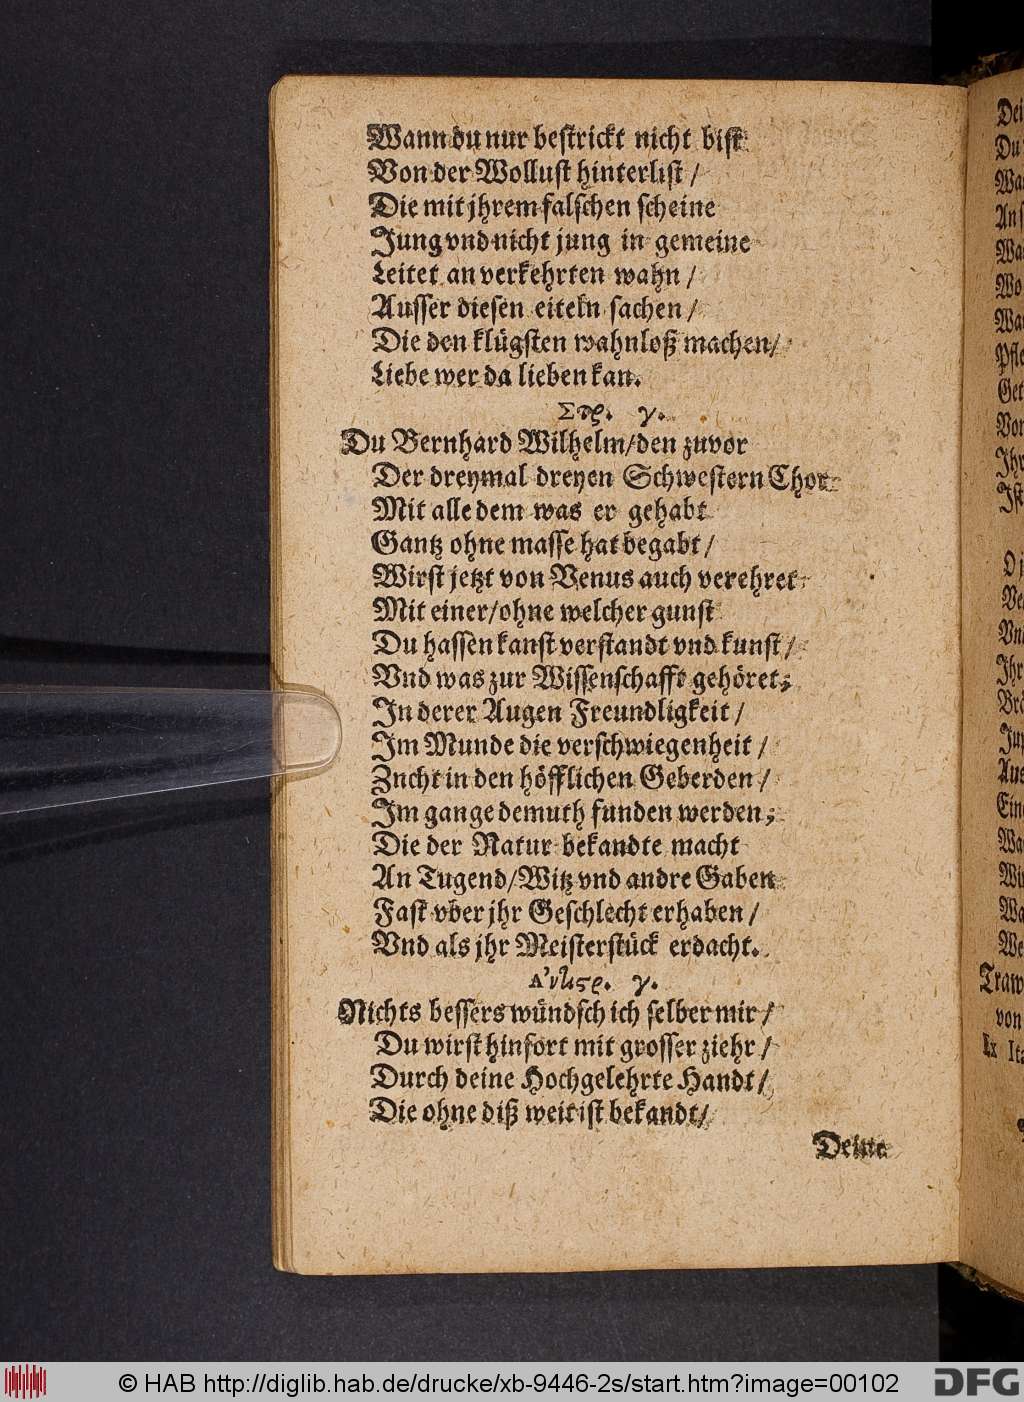 Wann du nur bestrickt nicht bist
Von der Wollust hinterlist /
Die mit jhrem falschen scheine
Jung vnd nicht jung in gemeine
Leitet an verkehrten wahn /
Ausser diesen eiteln sachen /
Die den klügsten wahnloß machen /
Liebe wer da lieben kan.
Στρ. γ.
Du Bernhard Wilhelm / den zuvor
Der dreymal dreyen Schwestern Chor
Mit alle dem was er gehabt
Gantz ohne masse hat begabt /
Wirst jetzt von Venus auch verehret
Mit einer / ohne welcher gunst
Du hassen kanst verstandt vnd kunst /
Vnd was zur Wissenschafft gehöret;
In derer Augen Freundligkeit /
Im Munde die verschwiegenheit /
Zucht in den höfflichen Geberden /
Im gange demuth funden werden;
Die der Natur bekandte macht
An Tugend / Witz vnd andre Gaben
Fast vber jhr Geschlecht erhaben /
Vnd als jhr Meisterstück erdacht.
Ἀντιστρ. γ.
Nichts bessers wündsch ich selber mir /
Du wirst hinfort mit grosser ziehr /
Durch deine Hochgelehrte Handt /
Die ohne diß weit ist bekandt /
Deine
Dei
Du
Wa
An s
Wa
Wo
Wa
Pfle
Get
Von
Ihr
Ist
O j
Ve
Vnd
Ihr
Brä
Jun
Aue
Eine
Wa
Wir
Wa
We
Traw
von
Ex Ita
© HAB http://diglib.hab.de/drucke/xb-9446-2s/start.htm?image=00102
DFG